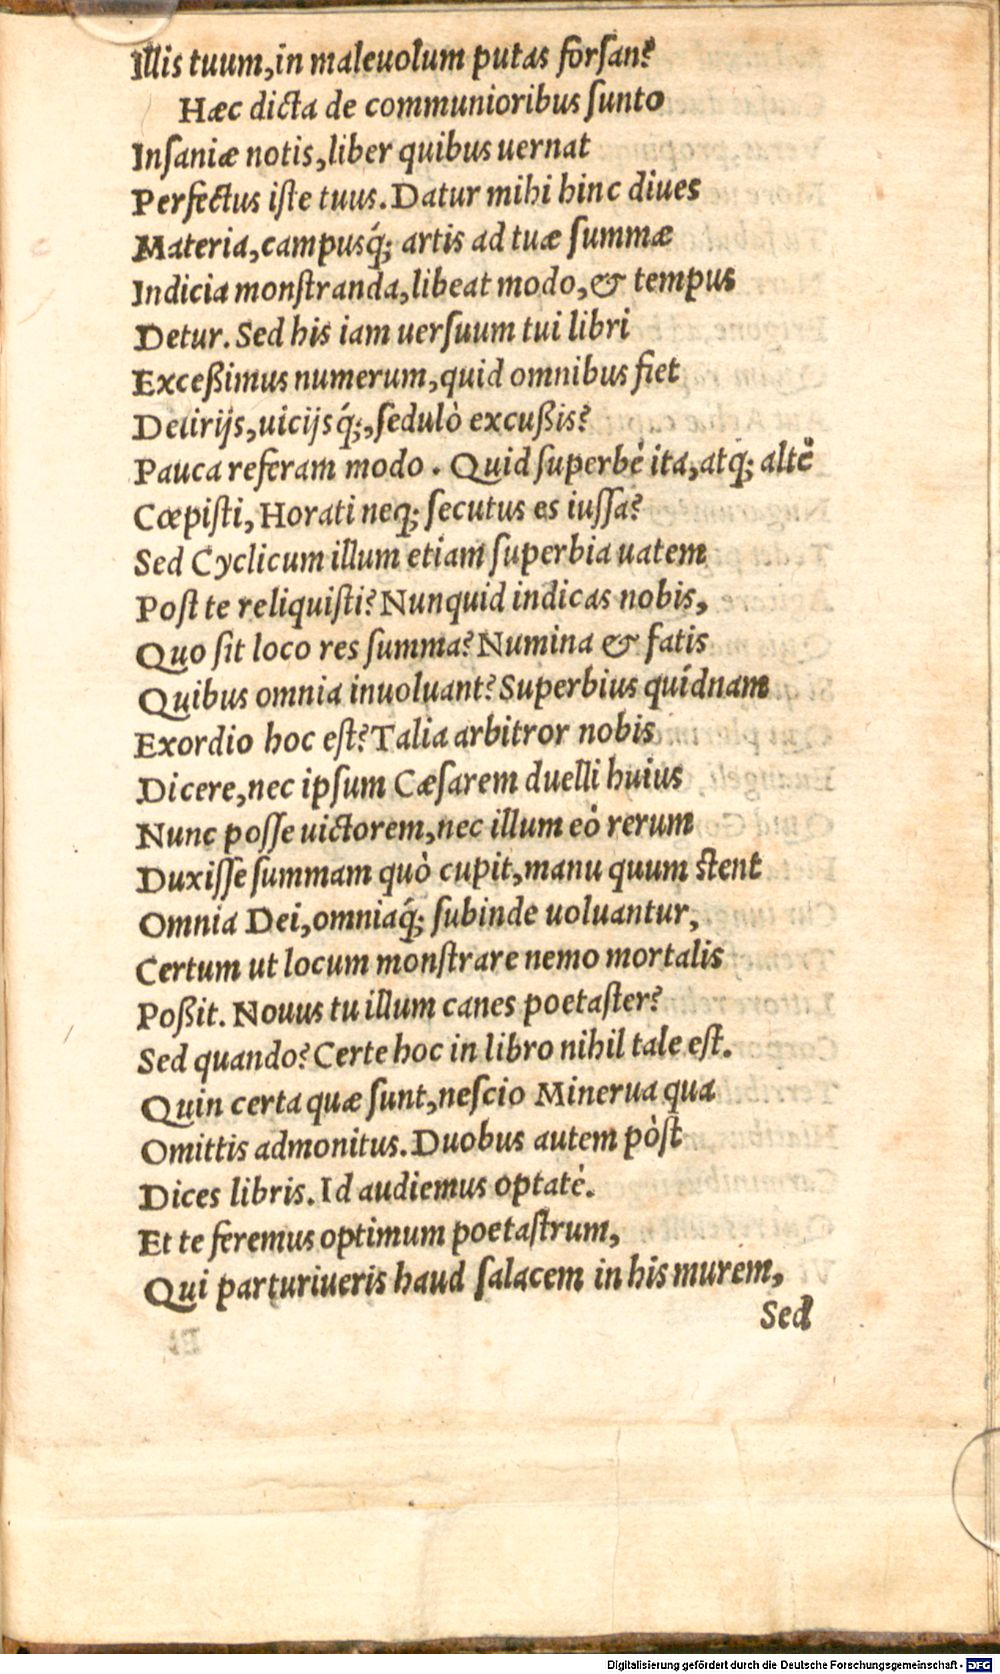 Illis tuum, in maleuolum putas forſan?
Hæc dicta de communioribus ſunto
Inſaniæ notis, liber quibus uernat
Perfectus iſte tuus. Datur mihi hinc diues
Materia, campusq́; artis ad tuæ ſummæ
Indicia monſtranda, libeat modo, & tempus
Detur. Sed his iam uerſuum tui libri
Exceßimus numerum, quid omnibus fiet
Delirijs, uicijsq́;, ſedulò excußis?
Pauca referam modo. Quid ſuperbè ita, atq; altè
Cœpiſti, Horati neq; ſecutus es iuſſa?
Sed Cyclicum illum etiam ſuperbia uatem
Poſt te reliquiſti? Nunquid indicas nobis,
Quo ſit loco res ſumma? Numina & fatis
Quibus omnia inuoluant? Superbius quídnam
Exordio hoc eſt? Talia arbitror nobis
Dicere, nec ipſum Cæſarem duelli huius
Nunc poſſe uictorem, nec illum eò rerum
Duxiſſe ſummam quò cupit, manu quum ſtent
Omnia Dei, omniaq́; ſubinde uoluantur,
Certum ut locum monſtrare nemo mortalis
Poßit. Nouus tu illum canes poetaſter?
Sed quando? Certe hoc in libro nihil tale eſt.
Quin certa quæ ſunt, neſcio Minerua qua
Omittis admonitus. Duobus autem pòſt
Dices libris. Id audiemus optatè.
Et te feremus optimum poetaſtrum,
Qui parturiueris haud ſalacem in his murem,
Sed
Digitalisierung gefördert durch die Deutsche Forschungsgemeinschaft - DFG